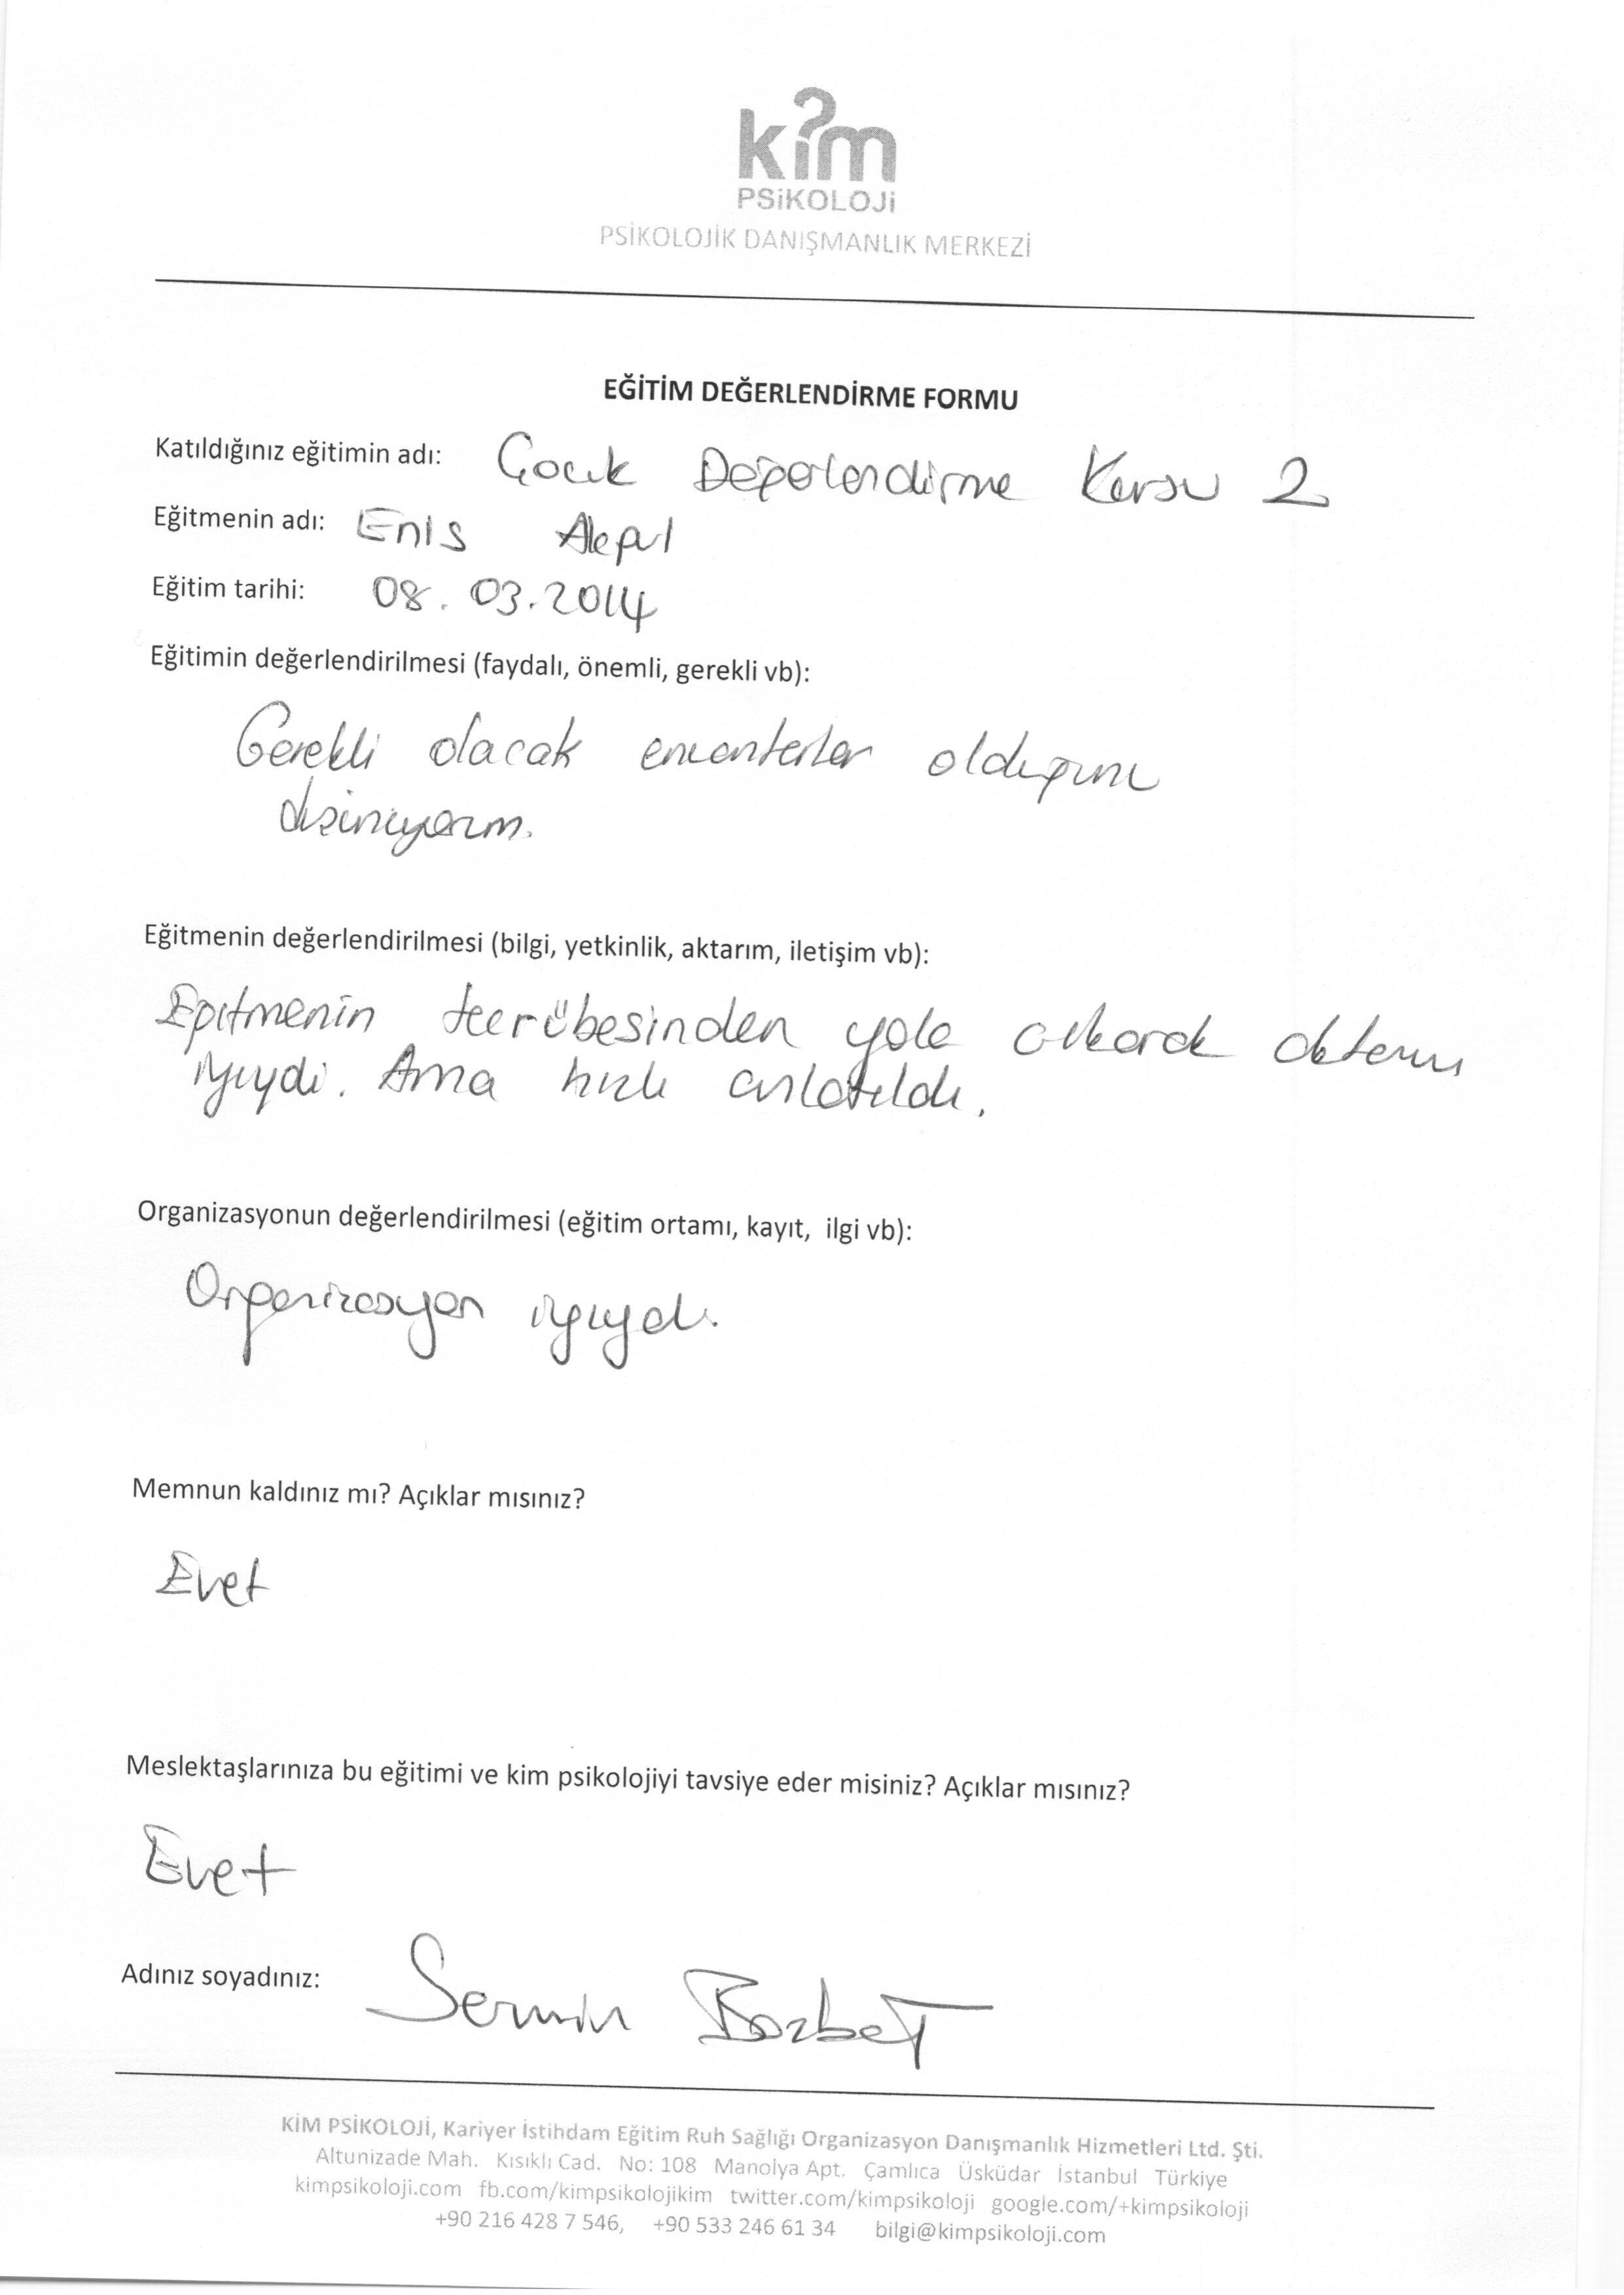 kim
PSiKOLOJi
PSİKOLOJİK DANIŞMANLIK MERKEZİ
EĞİTİM DEĞERLENDİRME FORMU
Katıldığınız eğitimin adı: Çocuk Değerlendirme Kursu 2
Eğitmenin adı: Enis
Eğitim tarihi: 08.03.2014
Eğitimin değerlendirilmesi (faydalı, önemli, gerekli vb):
Gerekli olacak envanterler olduğunu
düşünüyorum.
Eğitmenin değerlendirilmesi (bilgi, yetkinlik, aktarım, iletişim vb):
Eğitmenin tecrübesinden yola çıkarak aktarımı
iyiydi. Ama hızlı anlatıldı.
Organizasyonun değerlendirilmesi (eğitim ortamı, kayıt, ilgi vb):
Organizasyon iyiydi.
Memnun kaldınız mı? Açıklar mısınız?
Evet
Meslektaşlarınıza bu eğitimi ve kim psikolojiyi tavsiye eder misiniz? Açıklar mısınız?
Evet
Adınız soyadınız: Sermin
KİM PSİKOLOJİ, Kariyer İstihdam Eğitim Ruh Sağlığı Organizasyon Danışmanlık Hizmetleri Ltd. Şti.
Altunizade Mah. Kısıklı Cad. No: 108 Manolya Apt. Çamlıca Üsküdar İstanbul Türkiye
kimpsikoloji.com fb.com/kimpsikolojikim twitter.com/kimpsikoloji google.com/+kimpsikoloji
+90 216 428 7 546, +90 533 246 61 34 bilgi@kimpsikoloji.com